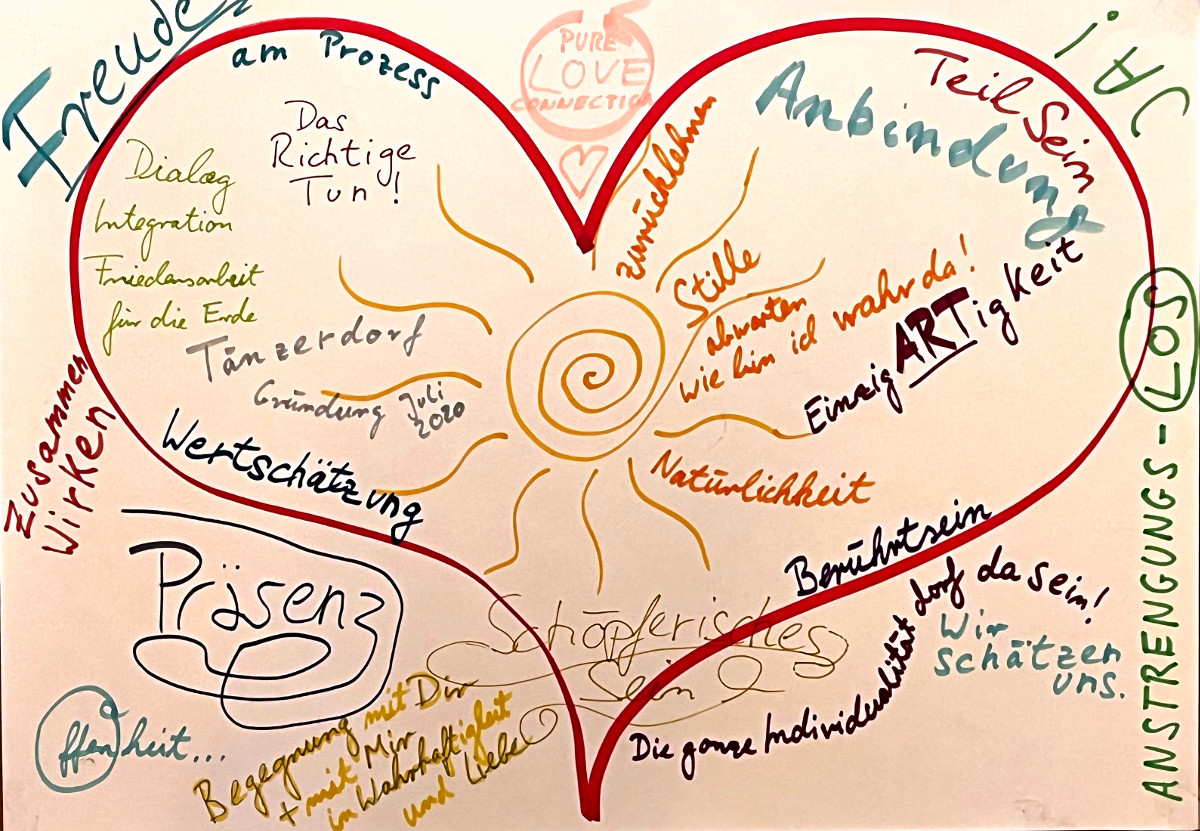 Freude
am Prozess
PURE
LOVE
CONNECTION
JA!
Teil Sein
Anbindung
Das
Richtige
Tun!
Dialog
Integration
Friedensarbeit
für die Erde
zurücklehnen
Stille
abwarten
wie bin ich wahr da!
EinzigARTigkeit
Tänzerdorf
Gründung Juli
2020
Wertschätzung
Zusammen
Wirken
Natürlichkeit
Berührtsein
ANSTRENGUNGS-LOS
Präsenz
Schöpferisches
Sein
Die ganze Individualität darf da sein!
Wir
schätzen
uns.
Offenheit...
Begegnung mit Dir
+ mit Mir
in Wahrhaftigkeit
und Liebe